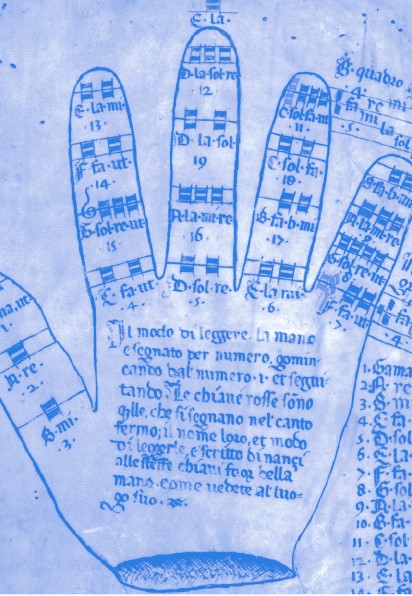 E la
D la sol re
12
E la mi
13
C sol fa ut
11
F fa ut
14
D la sol
19
C sol fa
18
G sol re ut
15
A la mi re
16
B fa b mi
17
C fa ut
4
D sol re
5
E la mi
6
F fa ut
7
A re
2
B mi
3
B quadro
4
fa re mi
mi la sol
5
Il modo di leggere la mano
e segnato per numero, comin
cando dal numero 1 et segui
tando. Le chiave rosse sono
qlle, che si segnano nel canto
fermo; il nome loro, et modo
di leggerle, e scritto di nanzi
alle stesse chiavi fuor della
mano. come vedete al luo-
go suo.
1. Gama
2. A re
3. B mi
4. C fa
5. D sol
6. E la
7. F fa
8. G sol
9. A la
10. B fa
11. C sol
12. D la
13. E la
14. F fa